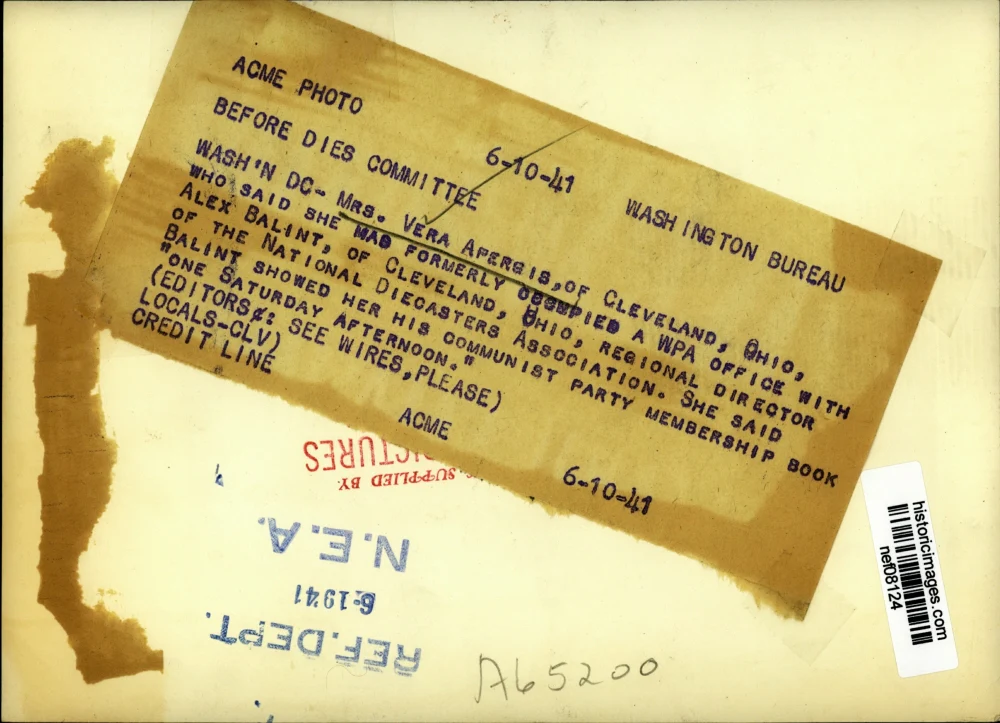 ACME PHOTO
BEFORE DIES COMMITTEE 6-10-41 WASHINGTON BUREAU
WASH'N DC- MRS. VERA APERGIS, OF CLEVELAND, OHIO,
WHO SAID SHE HAD FORMERLY OCCUPIED A WPA OFFICE WITH
ALEX BALINT, OF CLEVELAND, OHIO, REGIONAL DIRECTOR
OF THE NATIONAL DIECASTERS ASSOCIATION. SHE SAID
BALINT SHOWED HER HIS COMMUNIST PARTY MEMBERSHIP BOOK
"ONE SATURDAY AFTERNOON."
(EDITORS: SEE WIRES, PLEASE)
LOCALS-CLV)
CREDIT LINE ACME 6-10-41
SUPPLIED BY
N.E.A.
6-1941
REF. DEPT.
A65200
historicimages.com
nef08124